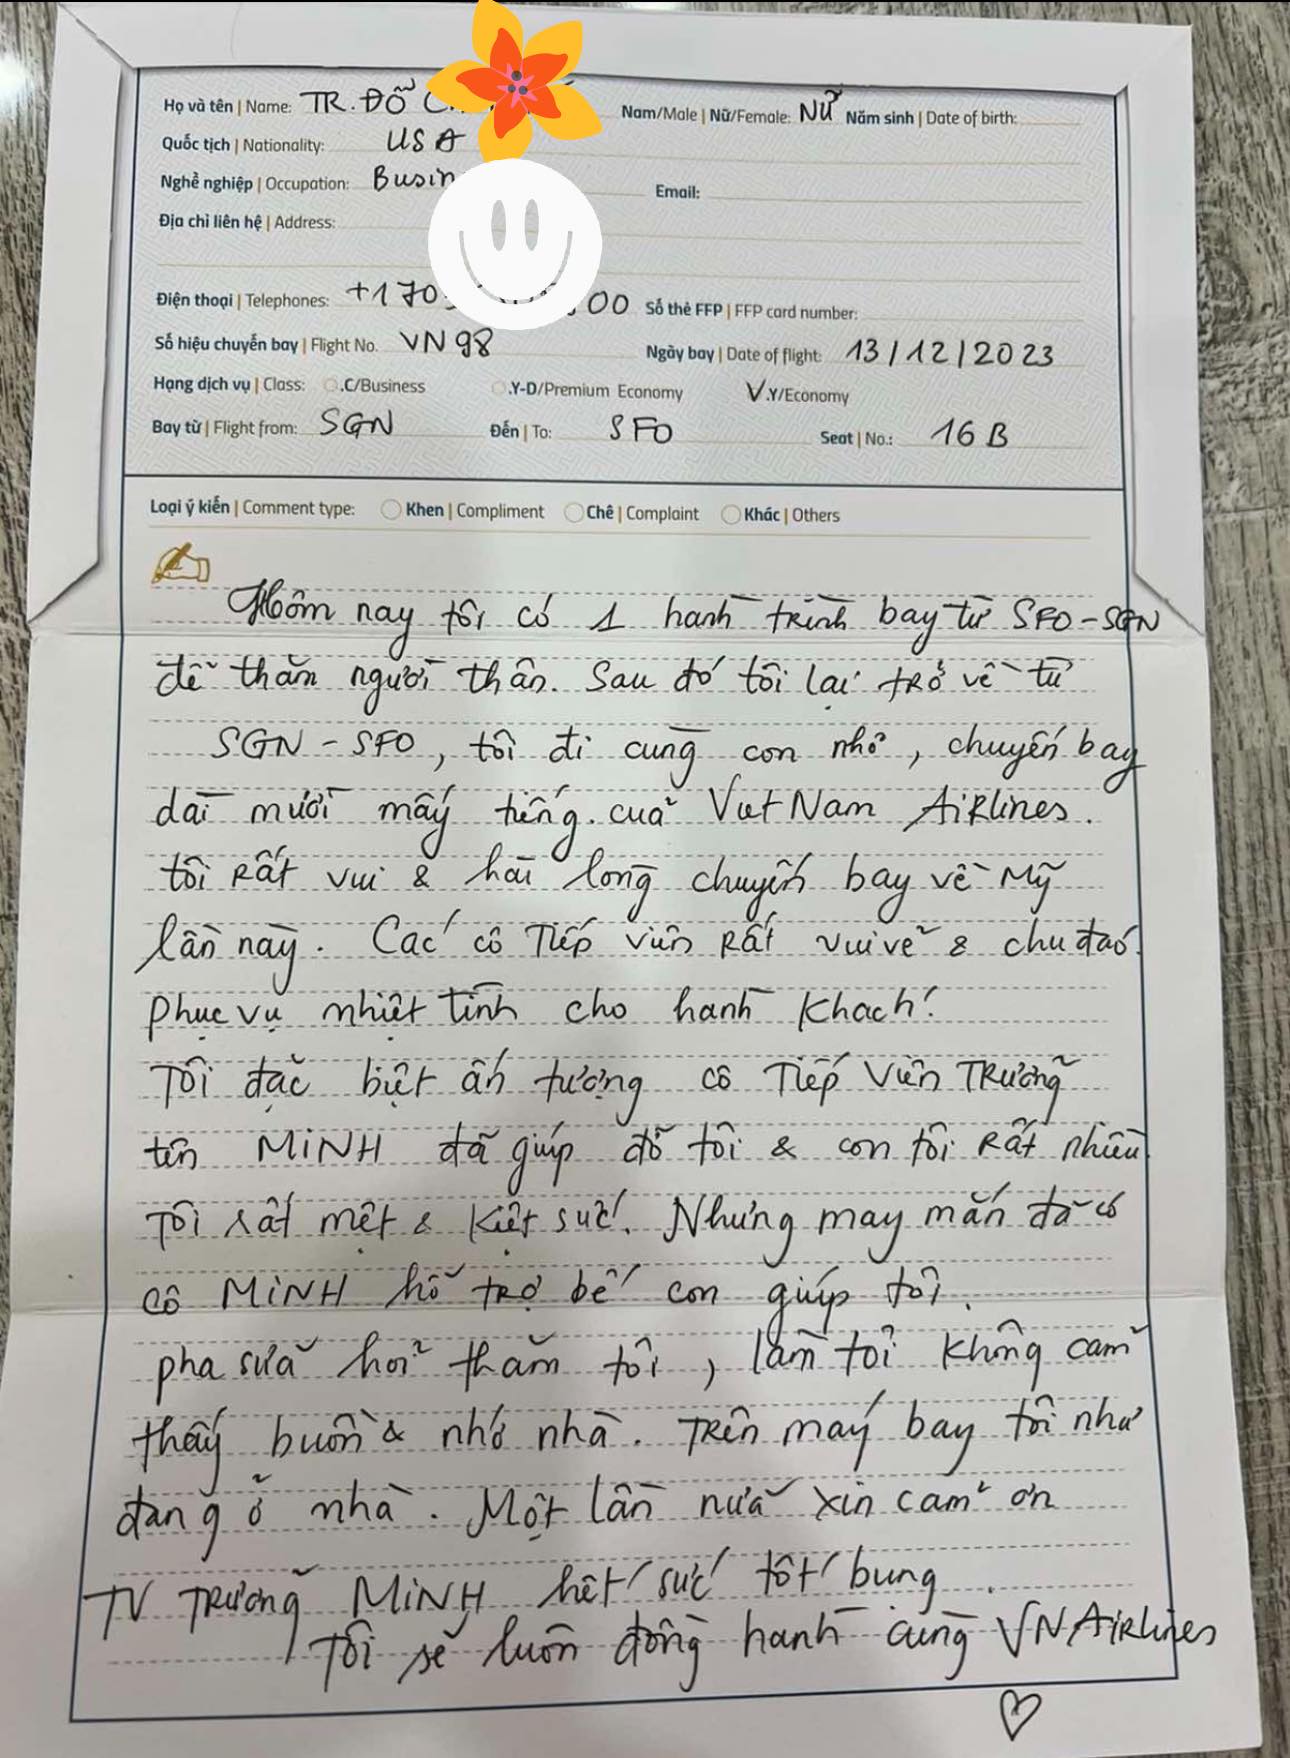 Họ và tên | Name: TR. ĐỖ
Nam/Male | Nữ/Female: NỮ Năm sinh | Date of birth:
Quốc tịch | Nationality: USA
Nghề nghiệp | Occupation: Busin
Email:
Địa chỉ liên hệ | Address:
Điện thoại | Telephones: +1 70 00 Số thẻ FFP | FFP card number:
Số hiệu chuyến bay | Flight No. VN 98 Ngày bay | Date of flight: 13/12/2023
Hạng dịch vụ | Class: .C/Business .Y-D/Premium Economy V.Y/Economy
Bay từ | Flight from: SGN Đến | To: SFO Seat | No.: 16 B
Loại ý kiến | Comment type: Khen | Compliment Chê | Complaint Khác | Others
Hôm nay tôi có 1 hành trình bay từ SFO-SGN
để thăm người thân. Sau đó tôi lại trở về từ
SGN - SFO, tôi đi cùng con nhỏ, chuyến bay
dài mười mấy tiếng. của Viet Nam Airlines.
tôi Rất vui & hài lòng chuyến bay về Mỹ
lần này. Các cô Tiếp viên Rất vui vẻ & chu đáo.
phục vụ nhiệt tình cho hành khách!
Tôi đặc biệt ấn tượng cô Tiếp Viên Trưởng
tên MINH đã giúp đỡ tôi & con tôi Rất nhiều
Tôi rất mệt & kiệt sức. Nhưng may mắn đã có
cô MINH hỗ trợ bế con giúp tôi.
pha sữa hỏi thăm tôi, làm tôi không cảm
thấy buồn & nhớ nhà. Trên máy bay tôi như
đang ở nhà. Một lần nữa xin cảm ơn
TV Trưởng MINH hết sức tốt bụng.
Tôi sẽ luôn đồng hành cùng VN Airlines